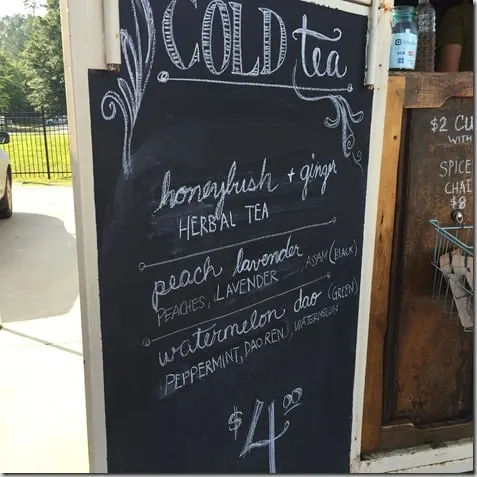 COLD tea
honeybush + ginger
HERBAL TEA
peach lavender (BLACK)
PEACHES, LAVENDER, ASSAM
watermelon dao (GREEN)
PEPPERMINT, DAO REN, WATERMELON
$4.00
$2 CU
WITH
SPICE
CHAI
$8